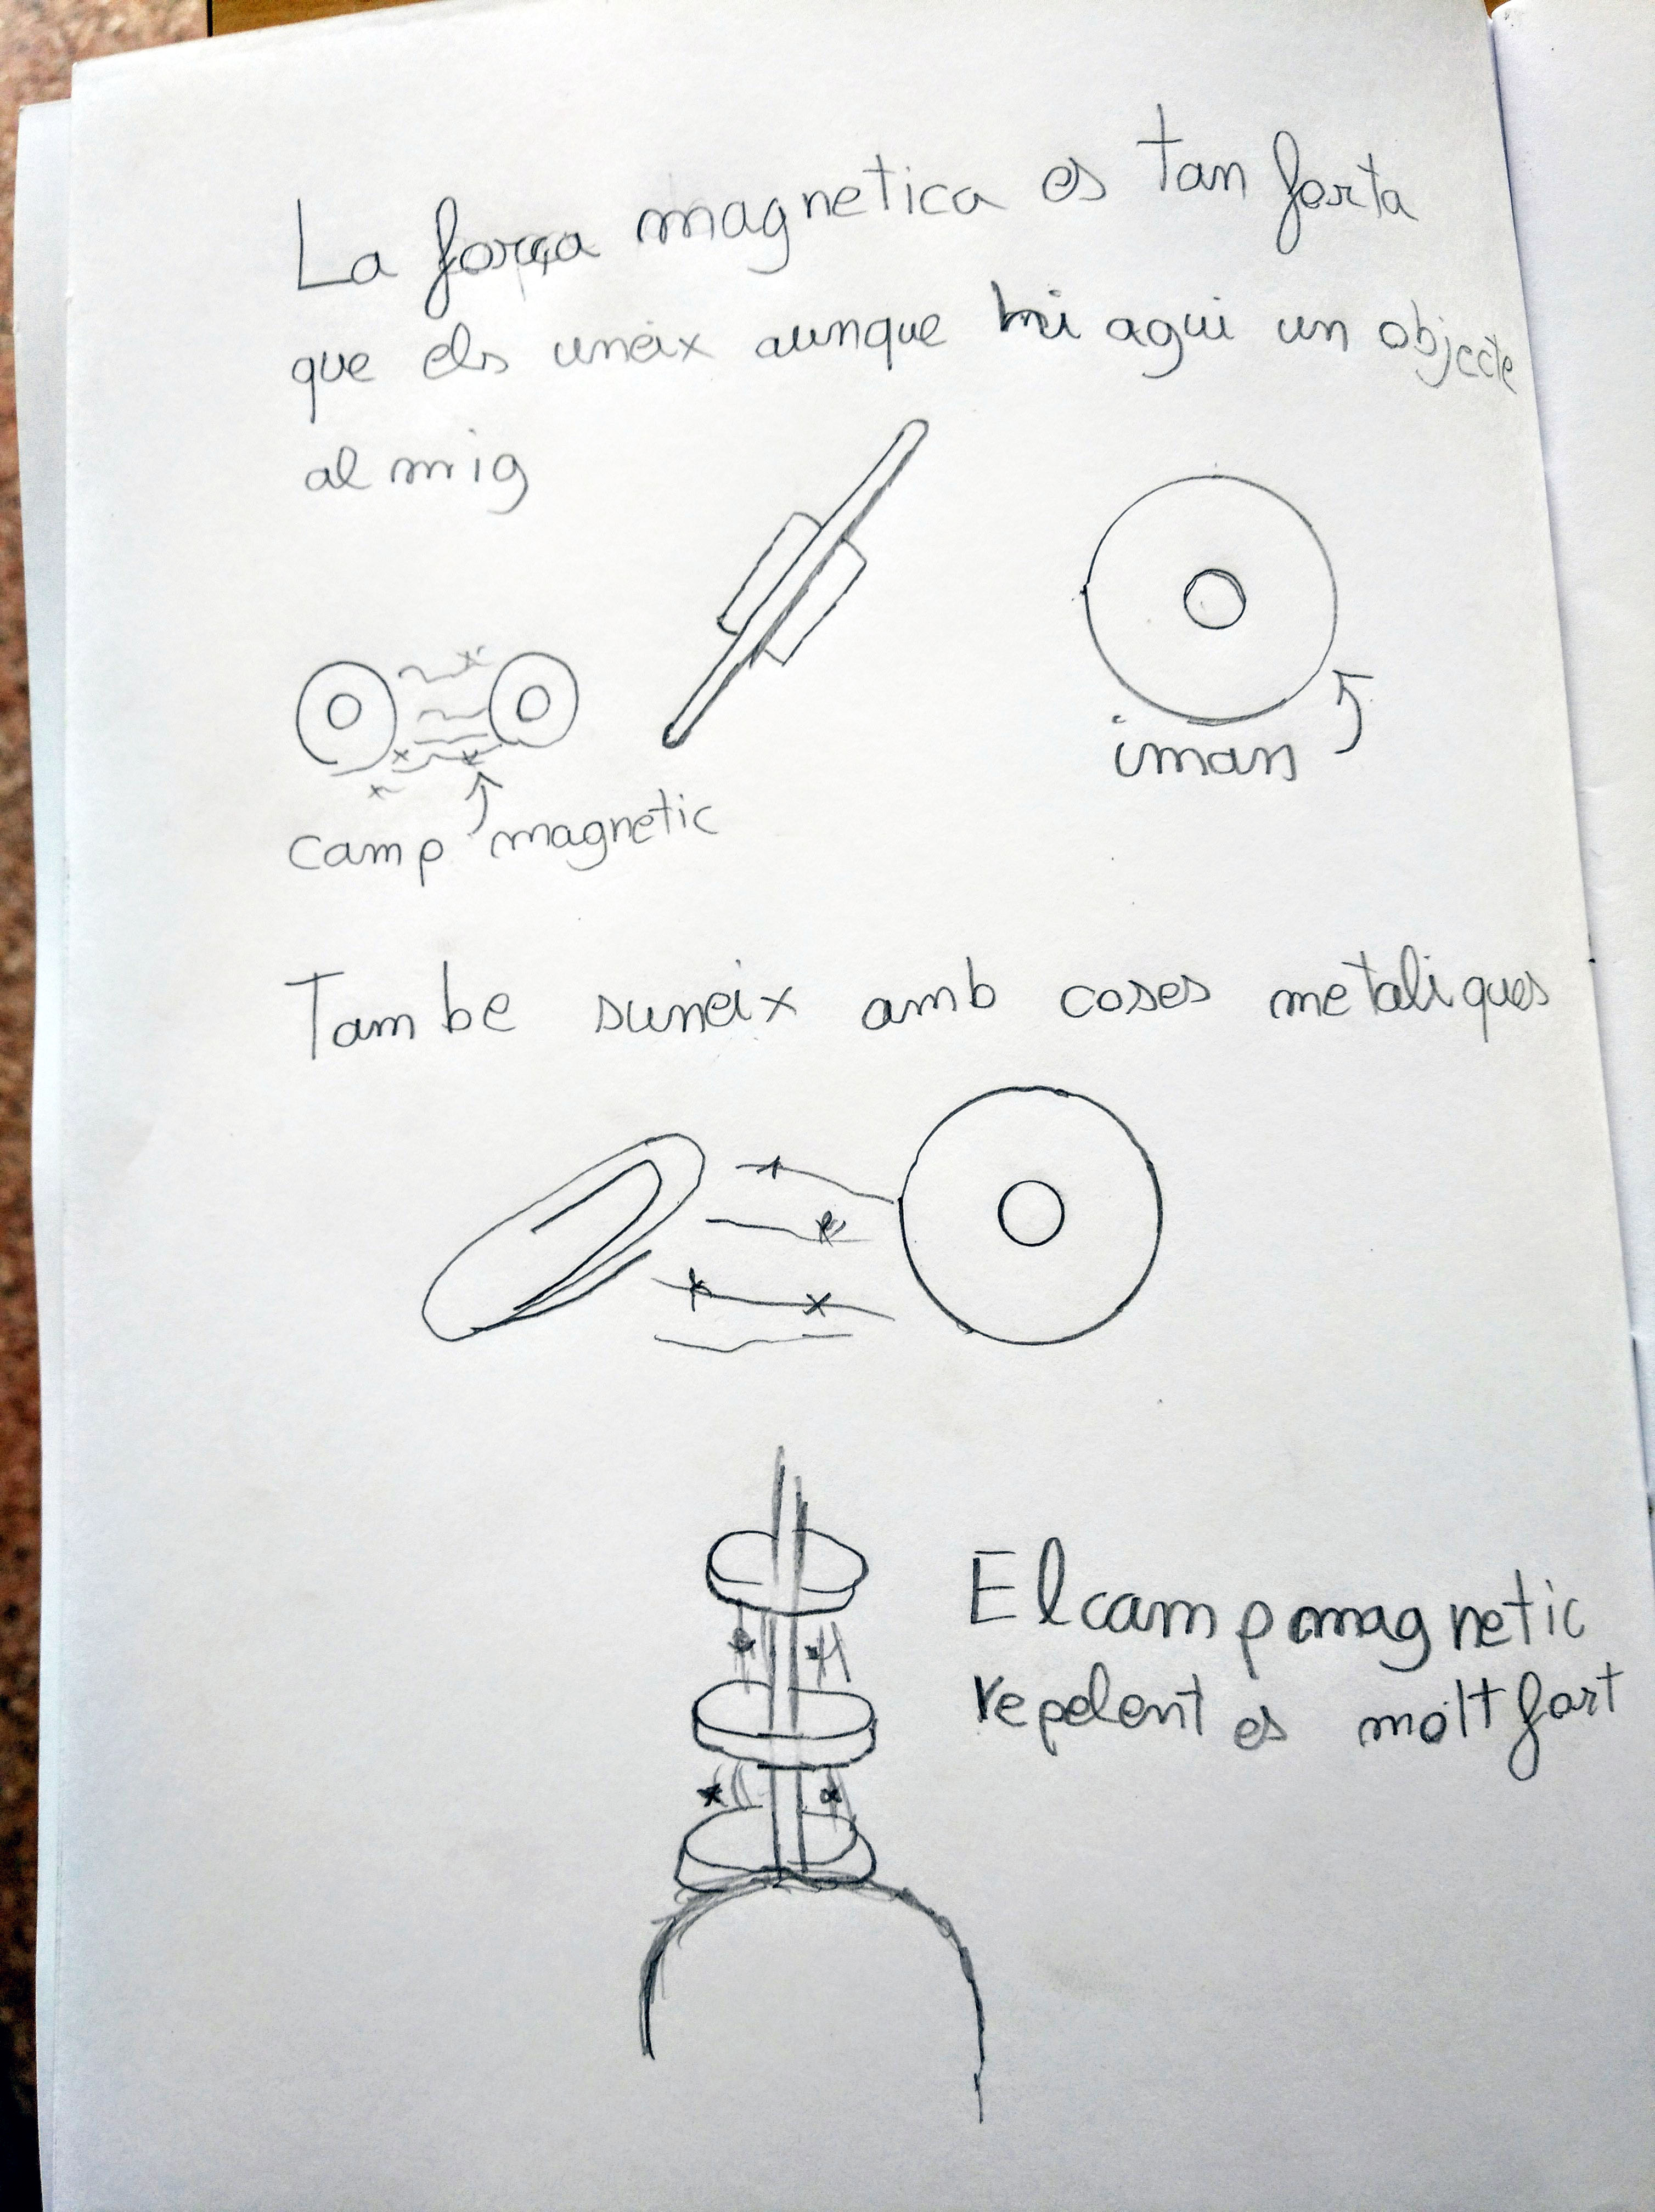 La força magnetica es tan forta
que els uneix aunque hi agui un objecte
al mig
iman
camp magnetic
Tambe suneix amb coses metaliques
El camp magnetic
repelent es molt fort